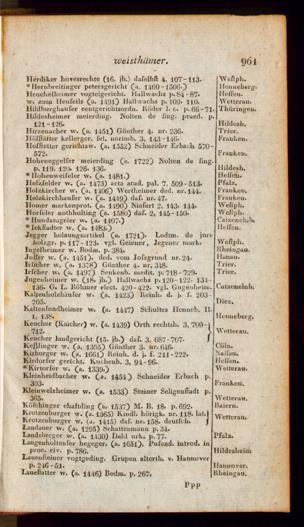 weisthümer. 961
Herdiker hovesrechte (16. jh.) daselbst 4. 107-113. Westph.
*Hernbreitinger petersgericht (a. 1460-1506.) Henneberg.
Heuchelheimer vogteigericht. Hallwachs p. 84-87. Hessen.
w. zum Heusels (a. 1491) Hallwachs p. 109. 110. Wetterau.
Hildburghauser centgerichtsordn. Röder l. c. p. 66-71. Thüringen.
Hildesheimer meierding. Nolten de sing. praed. p.
121-126. Hildesh.
Hirzenacher w. (a. 1451) Günther 4. nr. 236. Trier.
Hofstätter kellerger. sel. norimb. 3. 143-146. Franken.
Hofstetter gerichtsw. (a. 1552) Schneider Erbach 570-
572. Franken.
Hoheneggelser meierding (a. 1722) Nolten de sing.
p. 119. 129. 126-136. Hildesh.
*Hohenweiseler w. (a. 1481.) Hessen.
Holzfelder w. (a. 1473) acta acad. pal. 7. 509-513. Pfalz.
Holzkircher w. (a. 1406) Wertheimer ded. nr. 144. Franken.
Holzkirchhauser w. (a. 1449) daf. nr. 47. Franken.
Homer markenprot. (a. 1490) Kindlinger 2. 143. 144. Westph.
Horseler noltholting (a. 1580) das. 2, 145-150. Westph.
*Hundsangeler w. (a. 1497.) Catzenelnb.
*Ickstadter w. (a. 1483.) Hessen.
Jegger holzungsartikel (a. 1721). Lodtm. de jure
holzgr. p. 117-123. vgl. Geisener, Jegener mark. Westph.
Ingelheimer w. Bodm. p. 384. Rheingau.
Josser w. (a. 1451). ded. vom Josgrund nr. 24. Hanau.
Irlicher w. (a. 1378) Günther 4. nr. 318. Trier.
Irscher w. (a. 1497) Senkenb. medit. p. 718-729. Trier.
Jugesheimer w. (18. jh.) Hallwachs p. 120-122. 134-
136. G. L. Böhmer elect. 420-422. vgl. Gugenheim. Catzenelnb.
Kaltenholzhäuser w. (a. 1423) Reinh. d. j. f. 203-
205. Diez.
Kaltensundheimer w. (a. 1447) Schultes Henneb. II.
1, 138. Henneberg.
Keucher (Kaicher) w. (a. 1439) Orth rechtsh. 3, 709-
712. Wetterau.
Keucher hausgericht (15. jh.) das. 3. 687-707.
Keßlinger w. (a. 1395) Günther 3. nr. 646. Cöln.
Kirburger w. (a. 1661) Reinh. d. j. f. 211-222. Naßau.
Kirdorfer gericht. Kuchenb. 3, 94-96. Hessen.
*Kirtorfer w. (a. 1339.) Wetterau.
Kleinheubacher w. (a. 1454) Schneider Erbach p.
303. Franken.
Kleinwelzheimer w. (a. 1533) Steiner Seligenstadt p.
365. Wetterau.
Köschinger ehaftding (a. 1527) M. B. 18. p. 692. Baiern.
Krotzenburger w. (a. 1365) Kindl. hörigk. nr. 118. lat.
Krotzenburger w. (a. 1415) das. nr. 158. deutsch. Wetterau.
Landauer w. (a. 1295) Schattenmann p. 34.
Landsberger w. (a. 1430) Dahl urk. p. 77. Pfalz.
Langenholtensser hegeger. (a. 1651). Pufend. introd. in
proc. civ. p. 786. Hildesheim
Lauensteiner vogtgeding. Grupen alterth. v. Hannover
p. 246-51. Hannover.
Laustatter w. (a. 1446) Bodm. p. 267. Rheingau.
Ppp